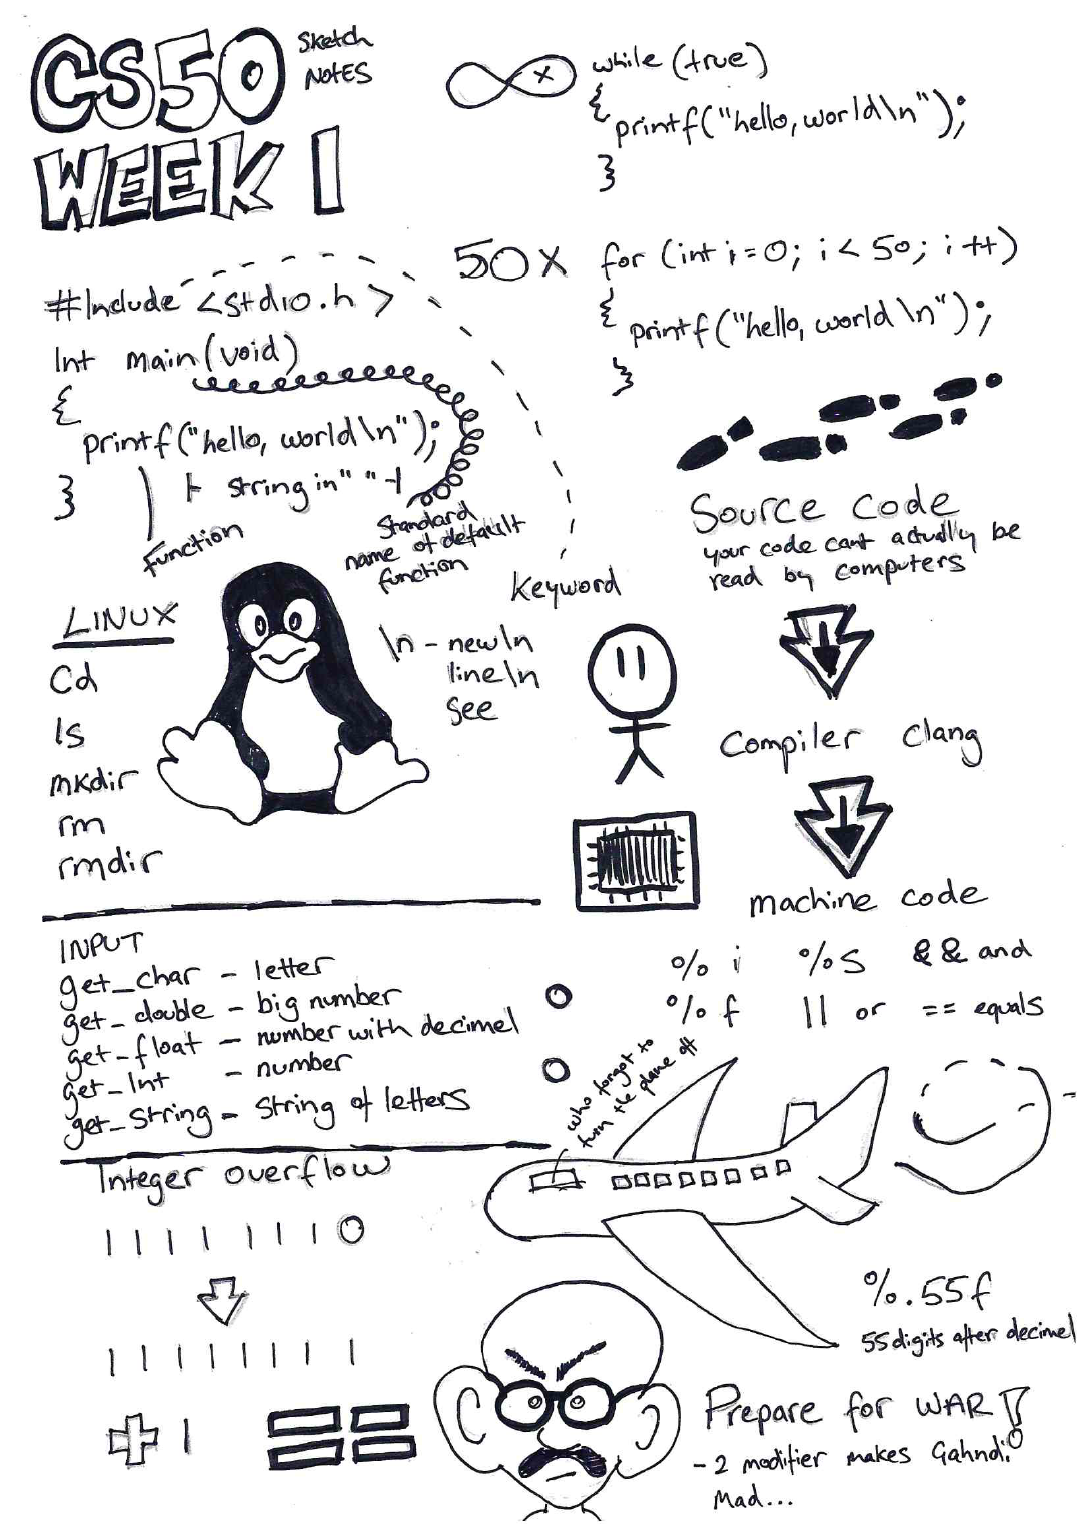 CS50
Sketch
Notes
WEEK 1
x
while (true)
{
printf("hello, world\n");
}
50x
for (int i=0; i < 50; i++)
{
printf("hello, world\n");
}
#Include <stdio.h>
Int main(void)
{
printf("hello, world\n");
}
string in " "
function
Standard
name of default
function
Keyword
Source code
your code cant actually be
read by computers
Compiler Clang
machine code
LINUX
Cd
ls
mkdir
rm
rmdir
\n - new\n
line\n
see
INPUT
get_char - letter
get_double - big number
get_float - number with decimel
get_Int - number
get_String - String of letters
% i %s && and
% f || or == equals
who forgot to
turn the plane off
Integer overflow
1 1 1 1 1 1 1 0
1 1 1 1 1 1 1 1
+ 1 ==
%.55f
55 digits after decimel
Prepare for WAR!
- 2 modifier makes Gahndi
Mad...